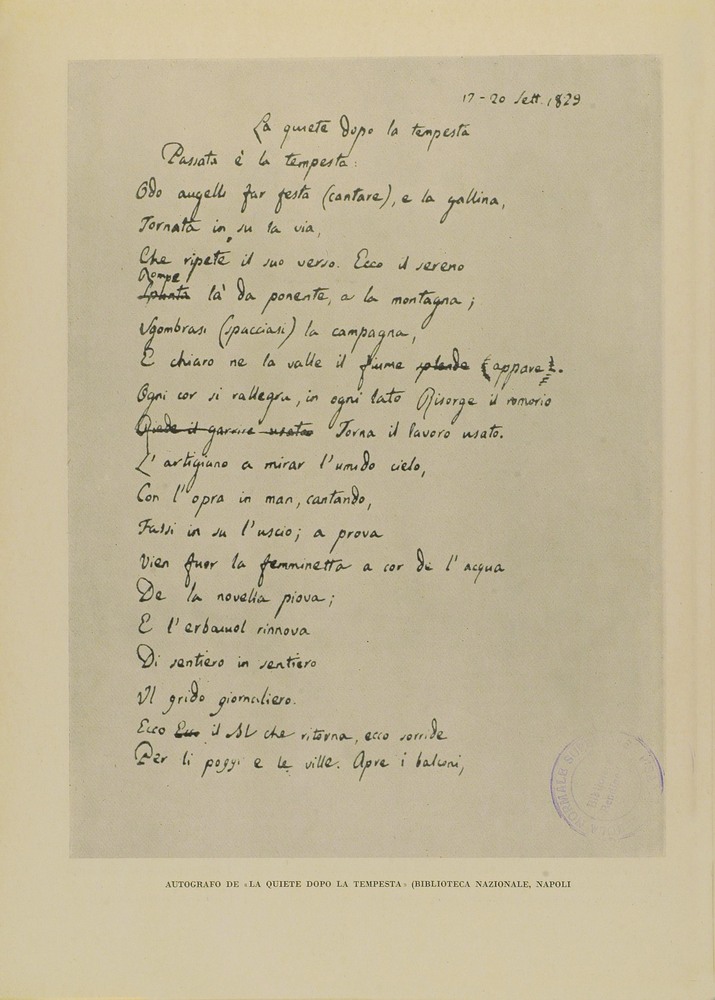 17-20 Sett. 1829
La quiete dopo la tempesta
Passata è la tempesta:
Odo augelli far festa (cantare), e la gallina,
Tornata in su la via,
Che ripete il suo verso. Ecco il sereno
Rompe
Spunta là da ponente, a la montagna;
Sgombrasi (spacciasi) la campagna,
E chiaro ne la valle il fiume splende (appare).
Ogni cor si rallegra, in ogni lato Risorge il romorio
Riede il garrire usato Torna il lavoro usato.
L'artigiano a mirar l'umido cielo,
Con l'opra in man, cantando,
Fassi in su l'uscio; a prova
Vien fuor la femminetta a cor de l'acqua
De la novella piova;
E l'erbaiuol rinnova
Di sentiero in sentiero
Il grido giornaliero.
Ecco Ecco il Sol che ritorna, ecco sorride
Per li poggi e le ville. Apre i balconi,
NORMALE S
AUTOGRAFO DE «LA QUIETE DOPO LA TEMPESTA» (BIBLIOTECA NAZIONALE, NAPOLI